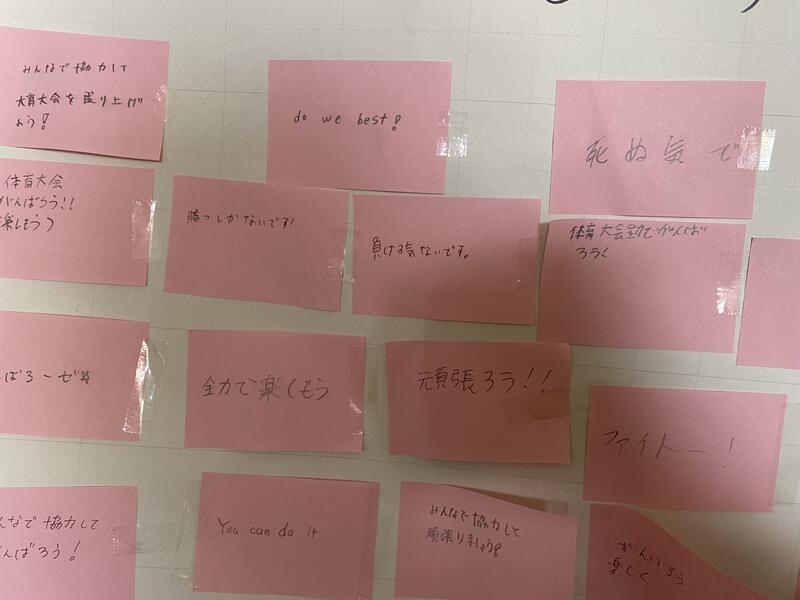 みんなで協力して
体育大会を盛り上げ
よう!
do we best!
死ぬ気で
体育大会
がんばろう!!
楽しもう
勝つしかないです!
負ける気ないです。
体育大会全力でがんば
ろう
ばろーぜ
全力で楽しもう
頑張ろう!!
ファイトー!
んなで協力して
んばろう!
You can do it
みんなで協力して
頑張りましょう!
がんばろう
楽しく